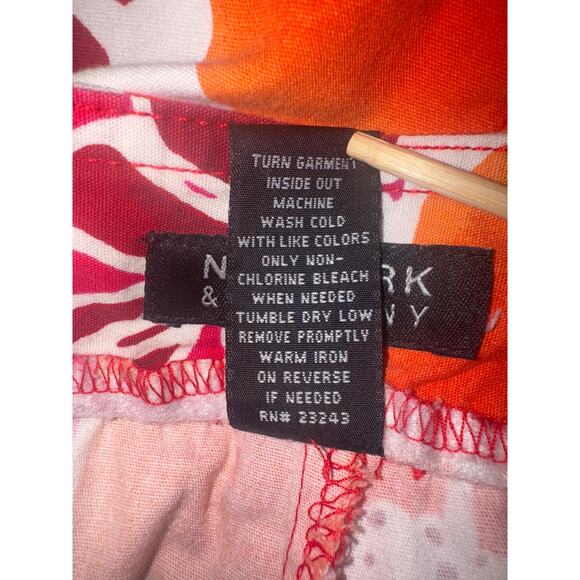 TURN GARMENT
INSIDE OUT
MACHINE
WASH COLD
WITH LIKE COLORS
ONLY NON-
CHLORINE BLEACH
WHEN NEEDED
TUMBLE DRY LOW
REMOVE PROMPTLY
WARM IRON
ON REVERSE
IF NEEDED
RN# 23243